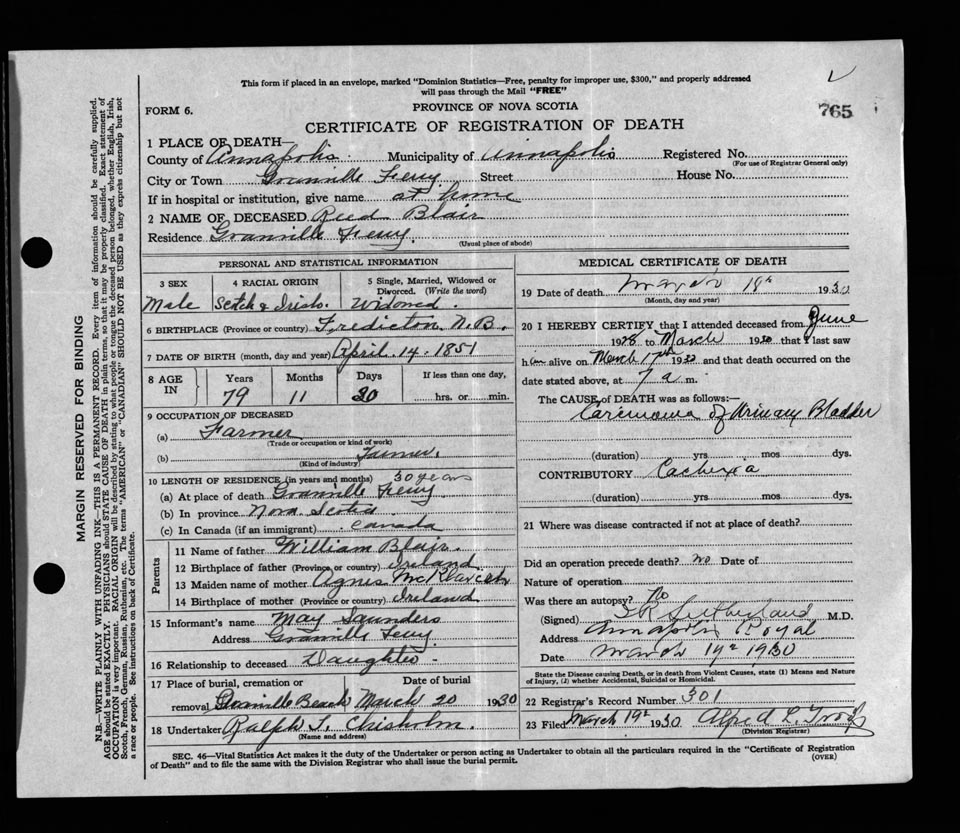 This form if placed in an envelope, marked "Dominion Statistics—Free, penalty for improper use, $300," and properly addressed
will pass through the Mail "FREE"
FORM 6.
PROVINCE OF NOVA SCOTIA
765
CERTIFICATE OF REGISTRATION OF DEATH
1 PLACE OF DEATH—
County of Annapolis Municipality of Annapolis Registered No.
(For use of Registrar General only)
City or Town Granville Ferry Street House No.
If in hospital or institution, give name at home
2 NAME OF DECEASED Reed Blair
Residence Granville Ferry.
(Usual place of abode)
PERSONAL AND STATISTICAL INFORMATION
3 SEX
Male
4 RACIAL ORIGIN
Scotch & Irish.
5 Single, Married, Widowed or
Divorced. (Write the word)
Widowed.
6 BIRTHPLACE (Province or country) Fredicton. N.B.
7 DATE OF BIRTH (month, day and year) April. 14. 1851
8 AGE
IN
Years
79
Months
11
Days
20
If less than one day,
hrs. or min.
9 OCCUPATION OF DECEASED
(a) Farmer
(Trade or occupation or kind of work)
(b) Farmer.
(Kind of industry)
10 LENGTH OF RESIDENCE (in years and months) 30 years
(a) At place of death Granville Ferry
(b) In province Nova Scotia
(c) In Canada (if an immigrant) Canada
Parents
11 Name of father William Blair.
12 Birthplace of father (Province or country) Ireland
13 Maiden name of mother Agnes
14 Birthplace of mother (Province or country) Ireland
15 Informant's name May Saunders
Address Granville Ferry
16 Relationship to deceased Daughter.
17 Place of burial, cremation or Date of burial
removal Granville Beach March 20 1930
18 Undertaker Ralph T. Chisholm.
(Name and address)
MEDICAL CERTIFICATE OF DEATH
19 Date of death March 19th 1930
(Month, day and year)
20 I HEREBY CERTIFY that I attended deceased from June
1928 to March 1930 that I last saw
him alive on March 17th 1930 and that death occurred on the
date stated above, at 7 a m.
The CAUSE of DEATH was as follows:—
Carcinoma of Urinary Bladder
(duration) yrs mos dys.
CONTRIBUTORY Cachexia
(duration) yrs mos dys.
21 Where was disease contracted if not at place of death?
Did an operation precede death? no Date of
Nature of operation
Was there an autopsy? No
(Signed) Sutherland M.D.
Address Annapolis Royal
Date March 19th 1930
State the Disease causing Death, or in death from Violent Causes, state (1) Means and Nature
of Injury, (2) whether Accidental, Suicidal or Homicidal.
22 Registrar's Record Number 301
23 Filed March 19th 1930 Alfred L.
(Division Registrar)
SEC. 46—Vital Statistics Act makes it the duty of the Undertaker or person acting as Undertaker to obtain all the particulars required in the "Certificate of Registration
of Death" and to file the same with the Division Registrar who shall issue the burial permit.
(OVER)
MARGIN RESERVED FOR BINDING
N.B.—WRITE PLAINLY WITH UNFADING INK—THIS IS A PERMANENT RECORD. Every item of information should be carefully supplied.
AGE should be stated EXACTLY. PHYSICIANS should STATE CAUSE OF DEATH in plain terms, so that it may be properly classified. Exact statement of
OCCUPATION is very important. RACIAL ORIGIN will be described by stating to what people or tongue the deceased person belonged, whether English, Irish,
Scotch, French, German, Russian, Ruthenian, etc. The terms "AMERICAN" or "CANADIAN" SHOULD NOT BE USED as they express citizenship but not
a race or people. See instructions on back of Certificate.